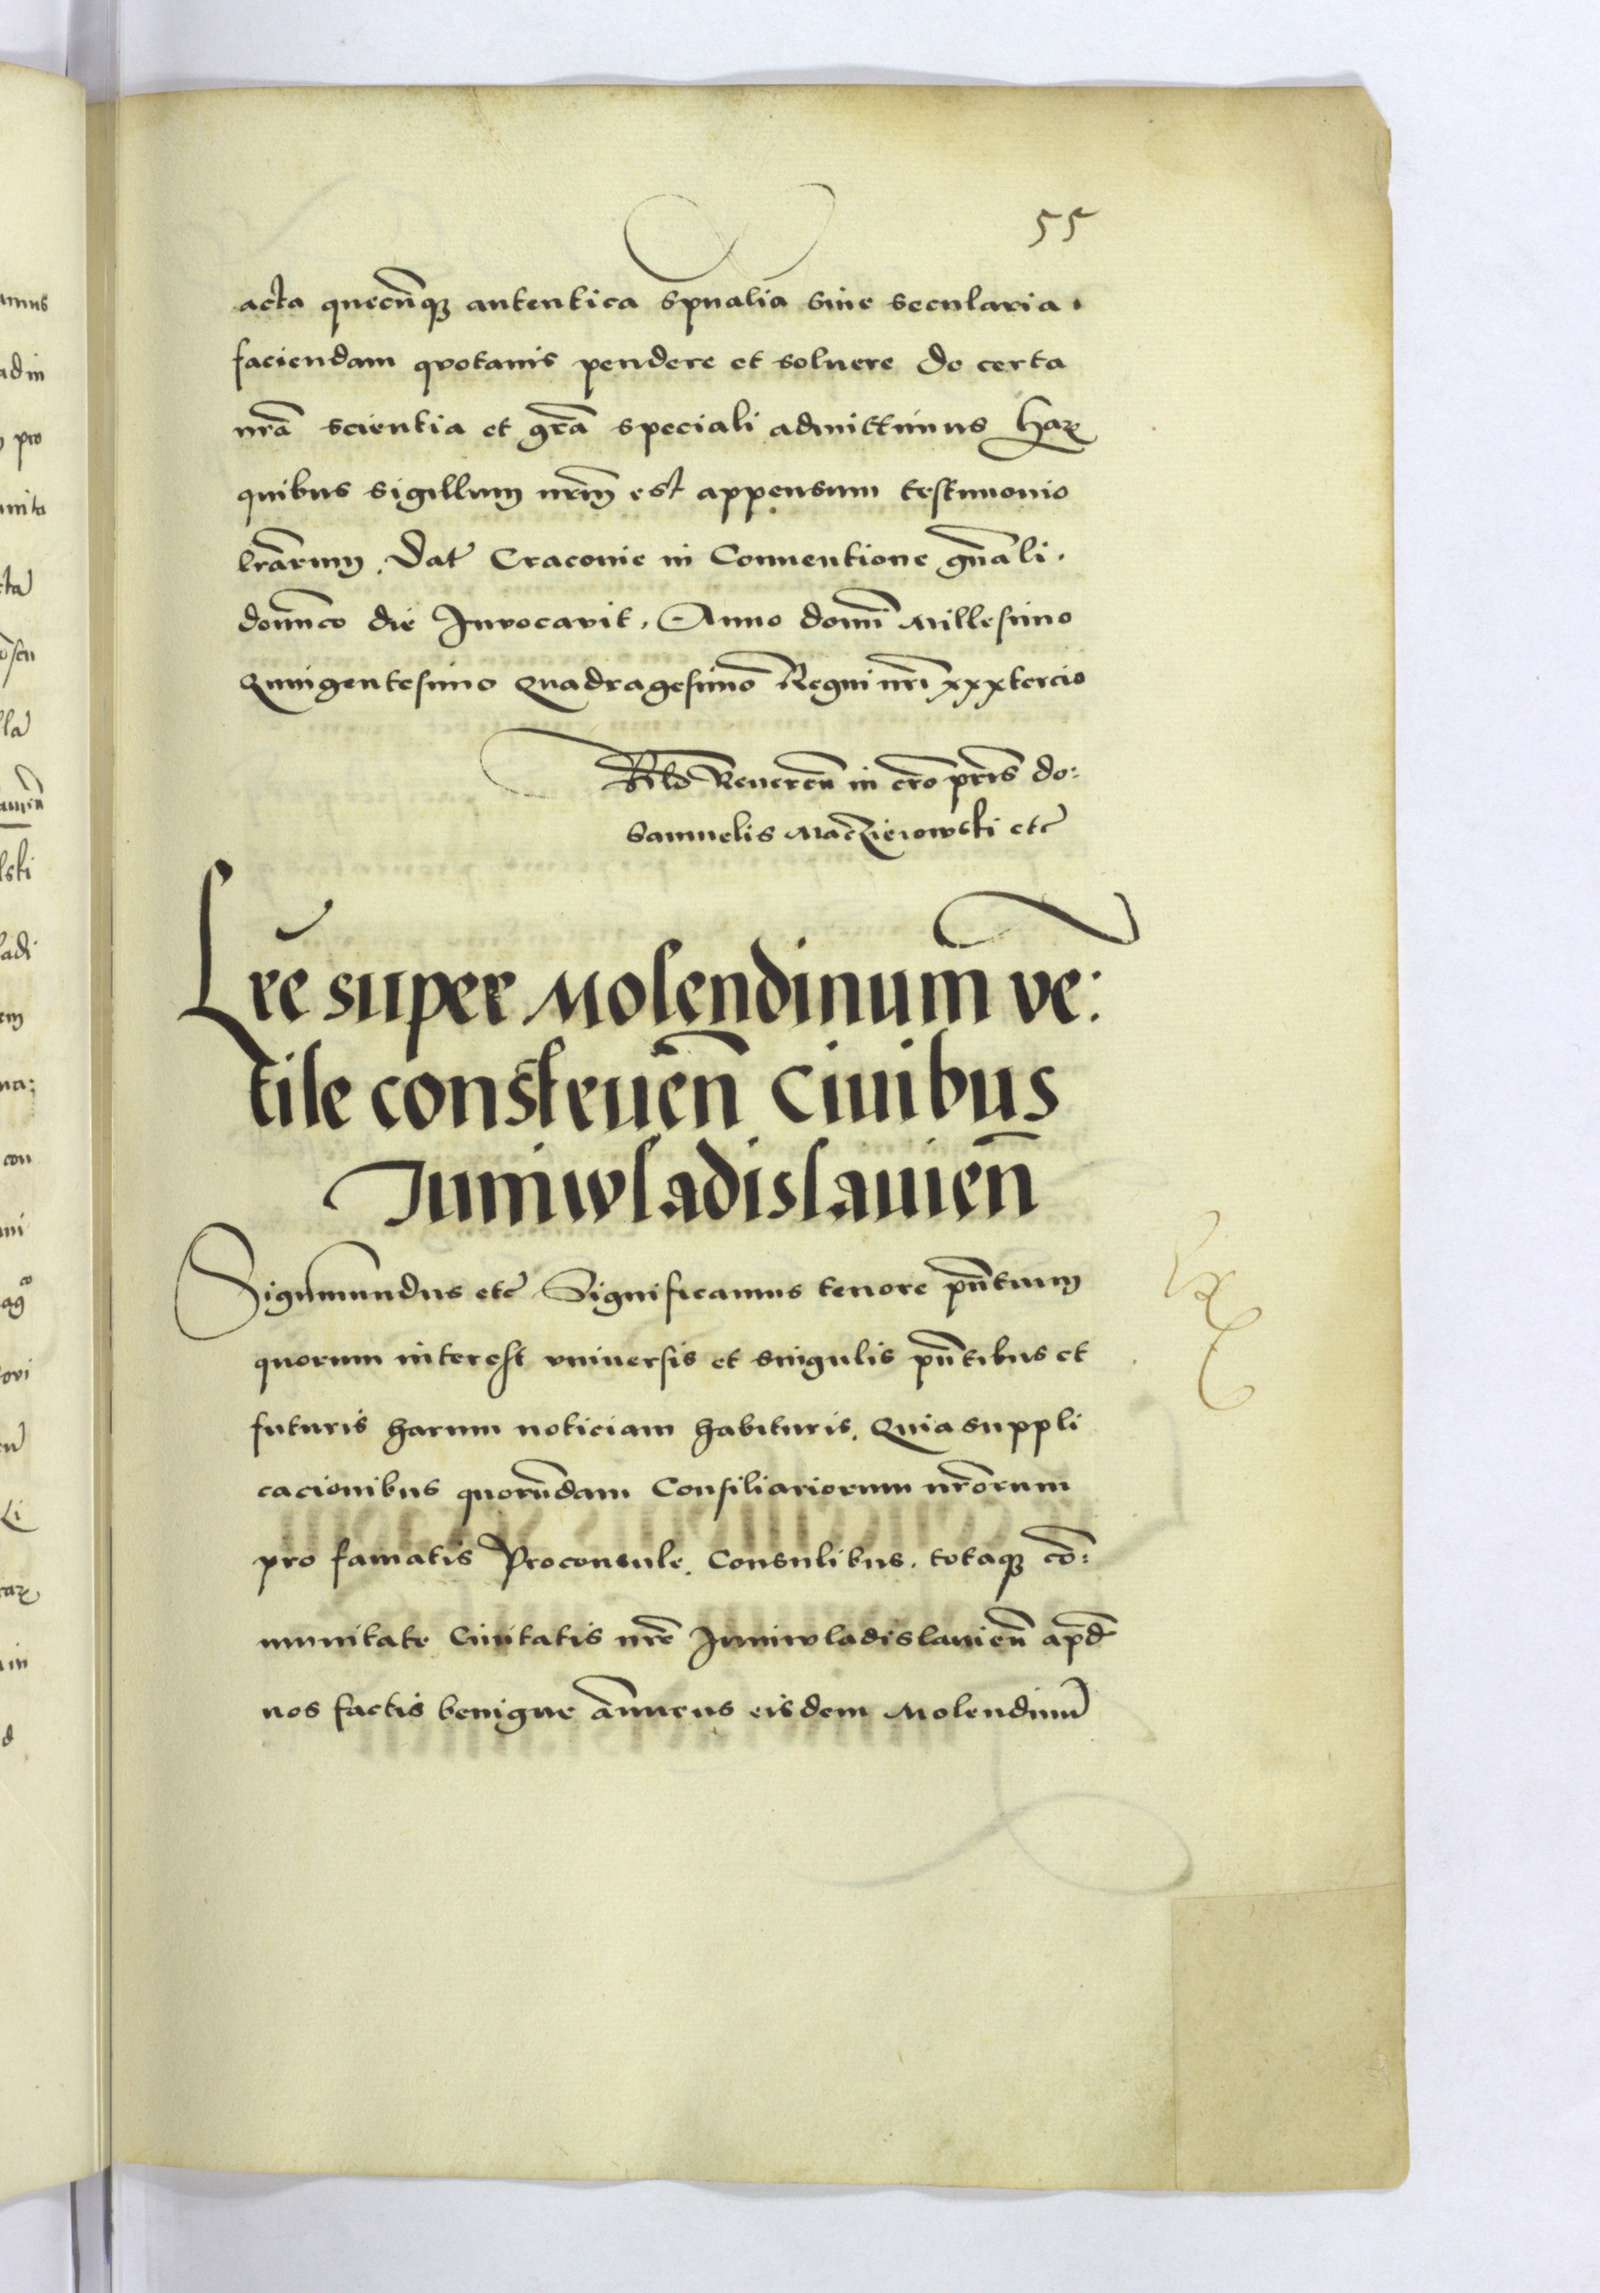 55
acta quecūqꝫ autentica spūalia siue secularia.
faciendam quotanis pendere et soluere de certa
nrā scientia et grā speciali admittimus Harꝝ
quibus sigillum nrm̄ est appensum testimonio
lrārum. Dat̄ Cracouie in Conuentione gn̄ali.
domīco die Inuocavit. Anno domī Millesimo
Quingentesimo quadragesimo Regni nrī xxxtercio
Rłō Reuerēn in cro p̄ris do:
Samuelis Maczieiowski etc̄
Lrē super Molendinum ve:
tile construēn Ciuibus
Iuniwladislauieñ
Sigismundus etc̄ Significamus tenore pn̄tium
quorum interest vniuersis et singulis pn̄tibus et
futuris harum noticiam habituris. Quia suppli
cacionibus quorūdam Consiliariorum nrōrum
pro famatis Proconsule. Consulibus. totaqꝫ cō:
munitate Ciuitatis nrē Iuniwladislauieñ apd̄
nos factis benigne annueñs eisdem Molendinū